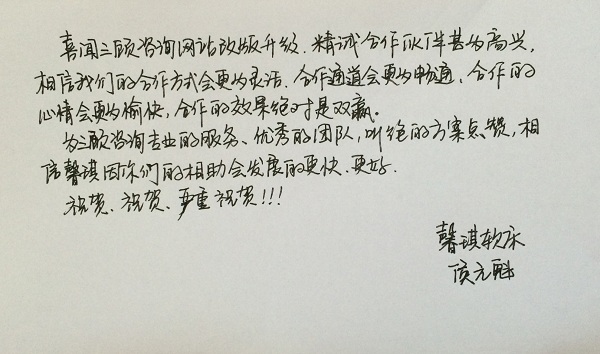 喜闻三顾咨询网站改版升级.精诚合作伙伴甚为高兴,
相信我们的合作方式会更为灵活.合作通道会更为畅通、合作的
心情会更为愉快,合作的效果绝对是双赢。
为三顾咨询专业的服务、优秀的团队,叫绝的方案点赞,相
信馨琪因你们的相助会发展的更快.更好.
祝贺、祝贺、严重祝贺!!!
馨琪软床
侯元魁